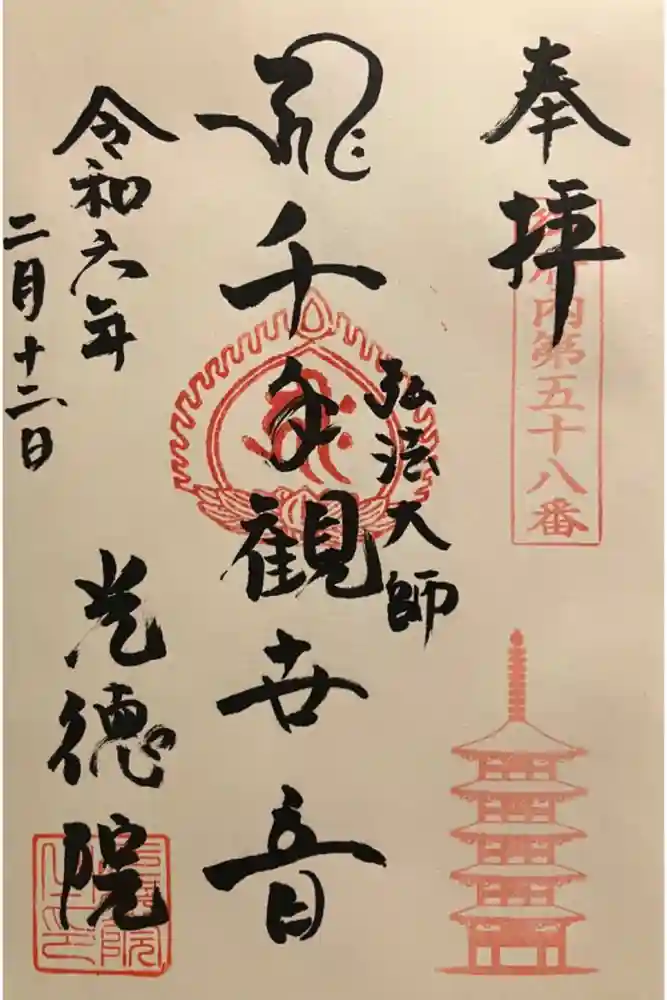 奉拝
御府内第五十八番
弘法大師
千手観世音
令和六年
二月十二日
光徳院